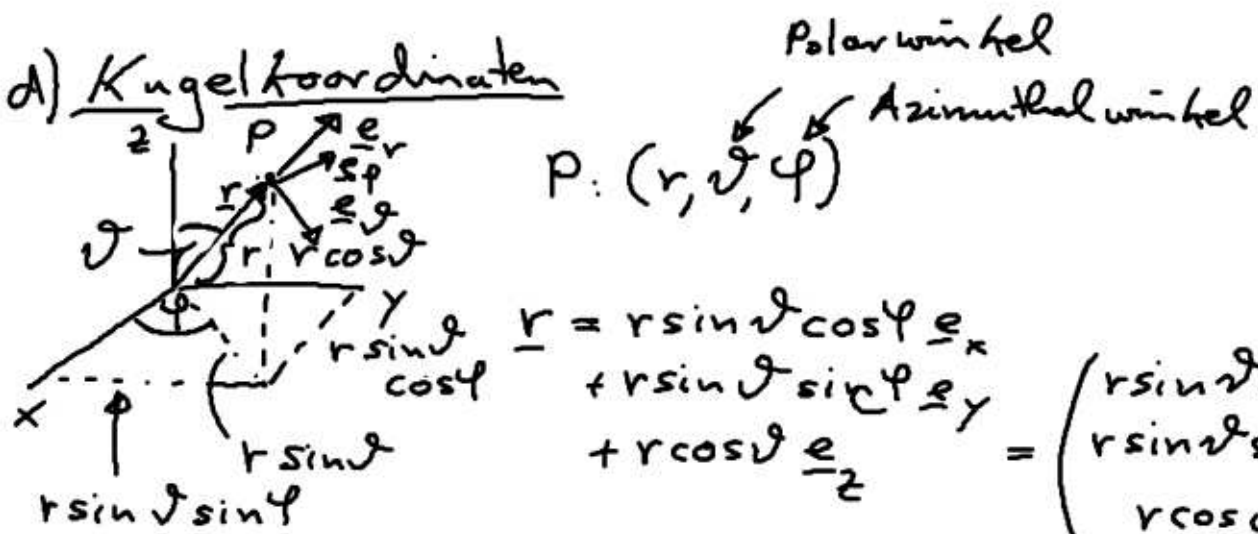 d) Kugelkoordinaten
Polarwinkel
Azimuthalwinkel
P: (r, ϑ, φ)
z
P
e_r
e_φ
e_ϑ
r
ϑ
r
r cosϑ
φ
y
x
r sinϑ
cosφ
r sinϑ
r sinϑ sinφ
r = r sinϑ cosφ e_x
+ r sinϑ sinφ e_y
+ r cosϑ e_z = (
r sinϑ
r sinϑ s
r cos